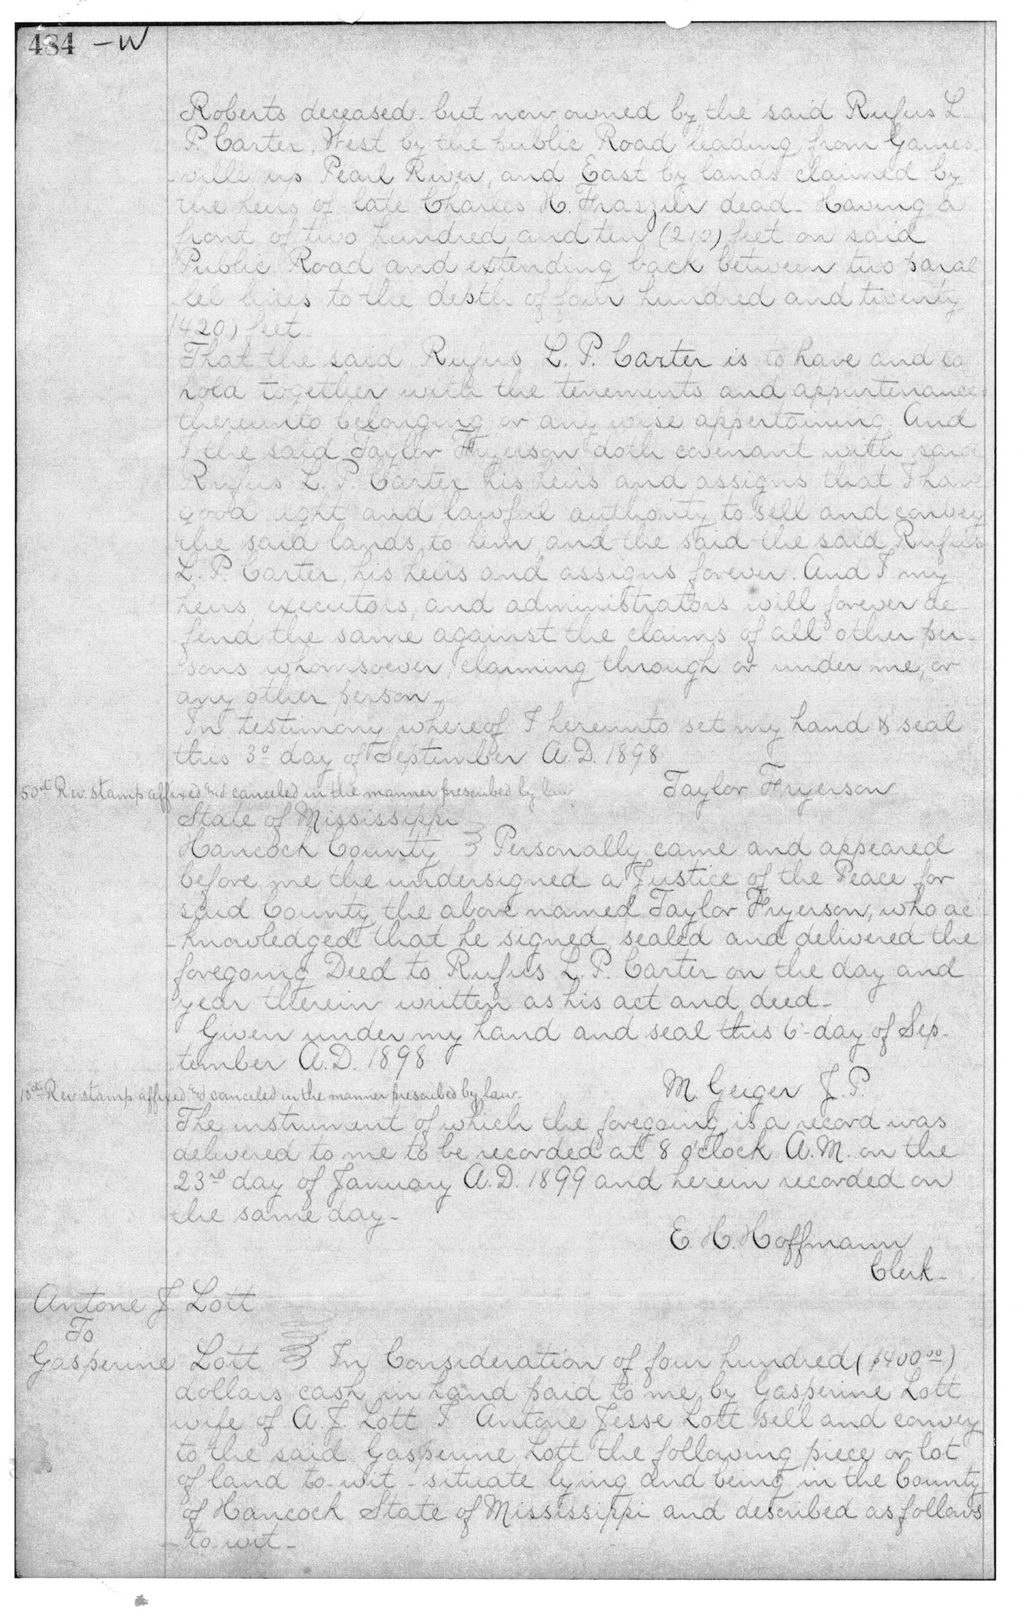 484 -W
Roberts deceased but now owned by the said Rufus L.
P. Carter, West by the public Road leading from Gaines-
ville up Pearl River, and East by lands claimed by
the heirs of late Charles H. Fraszier dead. Having a
front of two hundred and ten (210) feet on said
Public Road and extending back between two paral
lel lines to the depth of four hundred and twenty
(420) feet.
That the said Rufus L. P. Carter is to have and to
hold together with the tenements and appurtenances
thereunto belonging or any wise appertaining. And
I the said Taylor Fryerson doth covenant with said
Rufus L. P. Carter his heirs and assigns that I have
good right and lawful authority to sell and convey
the said lands to him and the said the said Rufus
L. P. Carter, his heirs and assigns forever. And I my
heirs, executors, and administrators will forever de-
fend the same against the claims of all other per-
sons whomsoever, claiming through or under me, or
any other person,
In testimony whereof I hereunto set my hand & seal
this 3d day of September A.D. 1898
Taylor Fryerson
50ct Rev. stamp affixed and canceled in the manner prescribed by law
State of Mississippi
Hancock County } Personally came and appeared
before me the undersigned a Justice of the Peace for
said County the above named Taylor Fryerson, who ac
knowledged that he signed, sealed and delivered the
foregoing Deed to Rufus L. P. Carter on the day and
year therein written as his act and deed-
Given under my hand and seal this 6 day of Sep-
tember A.D. 1898
M. Geiger J. P.
10ct Rev stamp affixed and canceled in the manner prescribed by law.
The instrument of which the foregoing is a record was
delivered to me to be recorded at 8 o'clock A.M. on the
23rd day of January A.D. 1899 and herein recorded on
the same day-
E. H. Hoffmann
Clerk-
Antone J. Lott
To
Gasperine Lott } In Consideration of four hundred ($400.00)
dollars cash in hand paid to me by Gasperine Lott
wife of A. J. Lott I Antone Jesse Lott sell and convey
to the said Gasperine Lott the following piece or lot
of land to-wit- situate lying and being in the County
of Hancock State of Mississippi and described as follows
to wit-